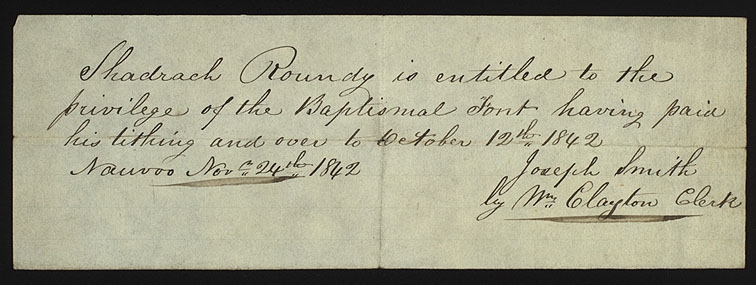 Shadrach Roundy is entitled to the
privilege of the Baptismal Font having paid
his tithing and over to October 12th 1842
Nauvoo Novr 24th 1842
Joseph Smith
by Wm Clayton Clerk